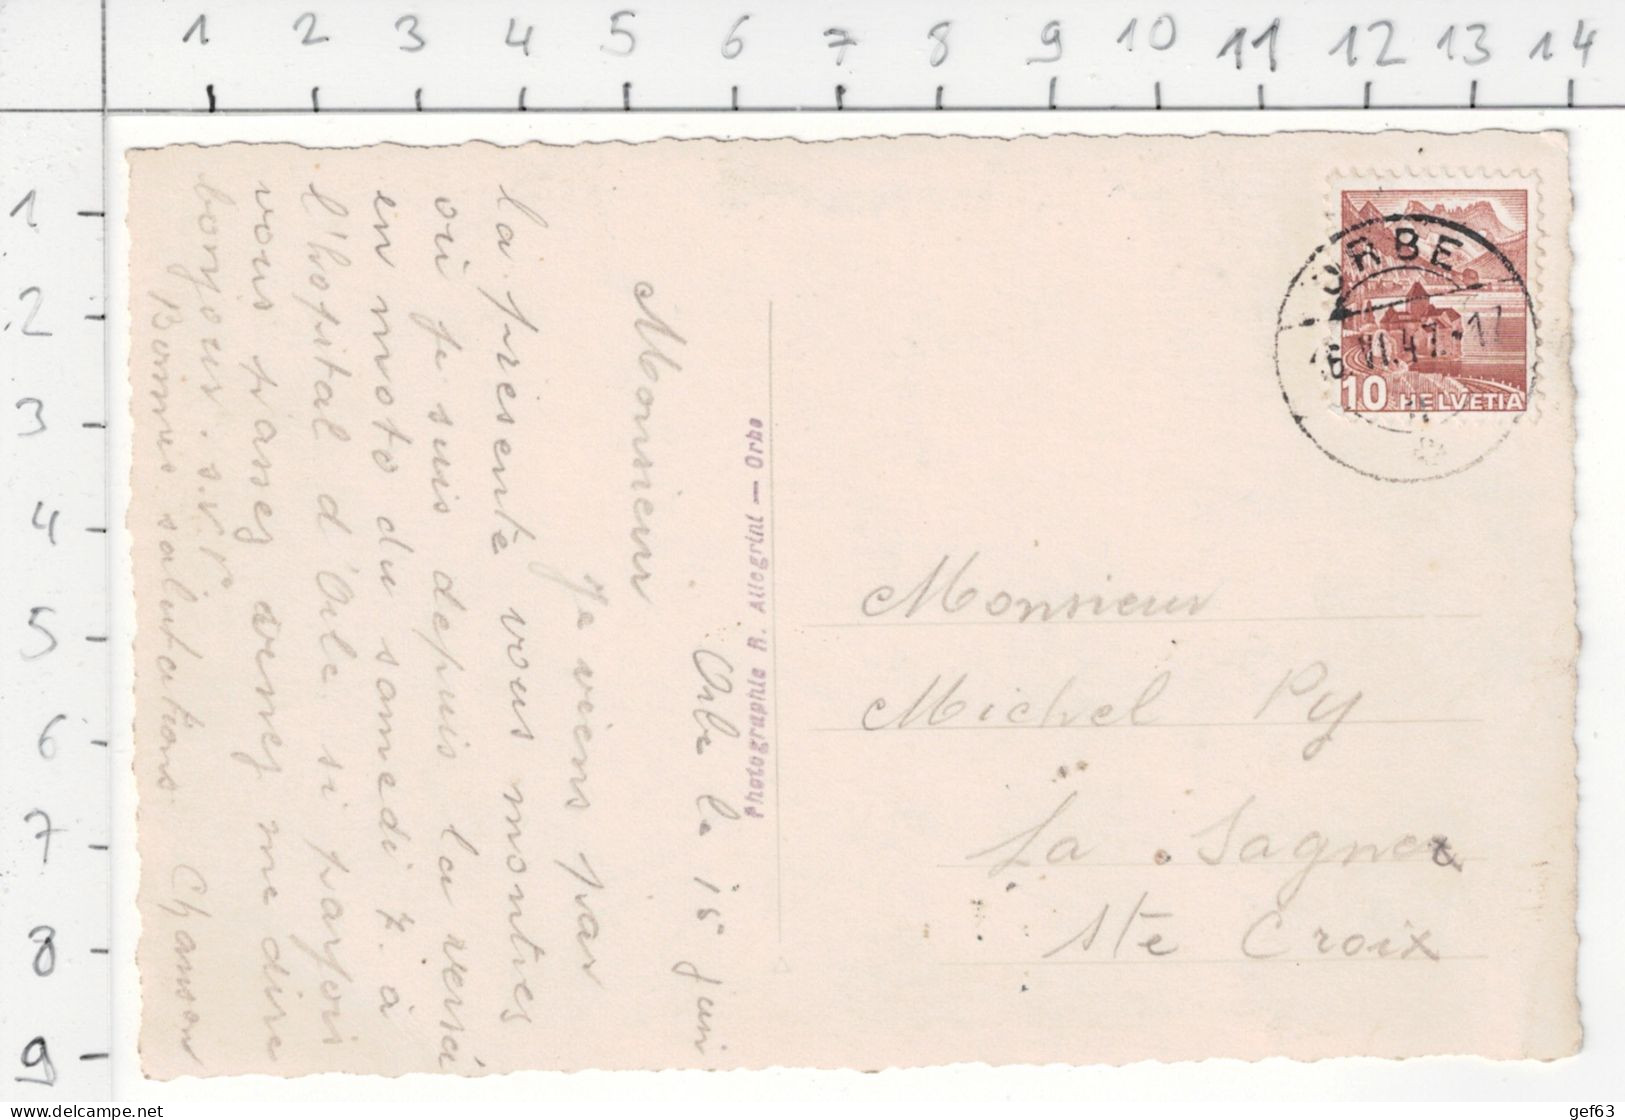 1 2 3 4 5 6 7 8 9 10 11 12 13 14
1
2
3
4
5
6
7
8
9
Orbe le 15 juin
Monsieur
Je viens par
la présente vous montres
oui je suis depuis la versé
en moto du samedi 7. à
l'hopital d'Orbe si parfoi
vous passez venez me dire
bonjour. s.v.P
Bonnes salutations Chanson
Photographie R. Allegrini — Orbe
ORBE
16.VI.47.-17
10 HELVETIA
Monsieur
Michel Py
La Sagnez
Ste Croix
www.delcampe.net
gef63